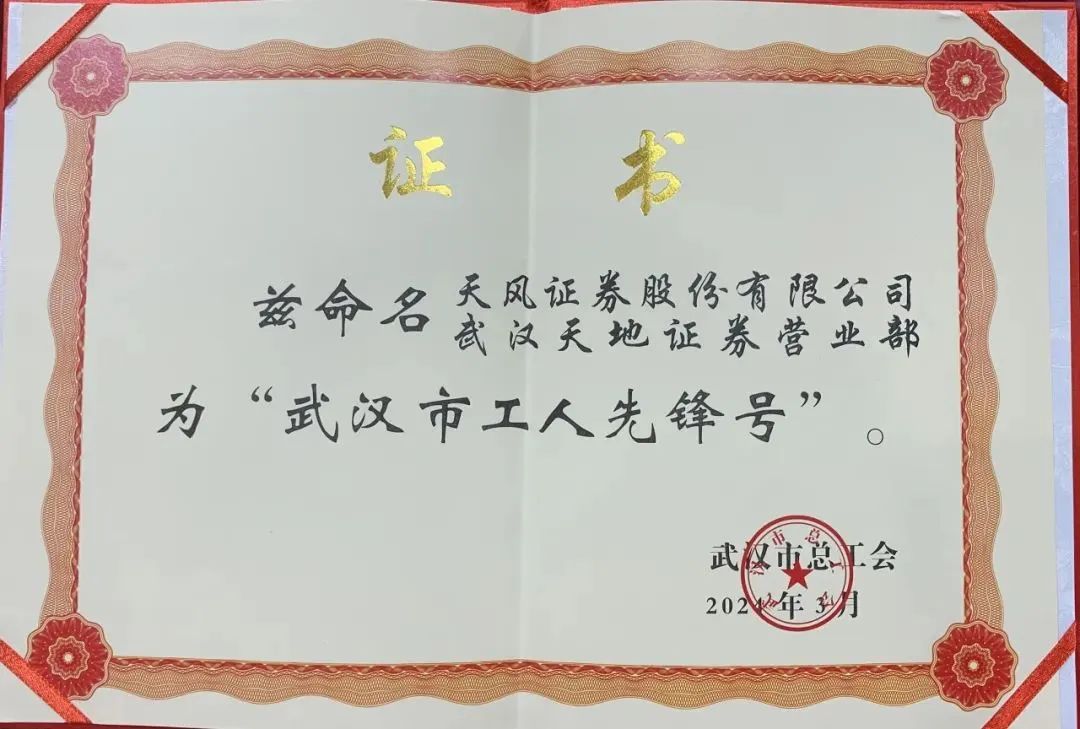 证 书
兹命名 天风证券股份有限公司
武汉天地证券营业部
为“武汉市工人先锋号”。
武汉市总工会
2024年3月